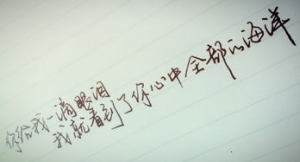 你给我一滴眼泪
我就看到了你心中全部的海洋